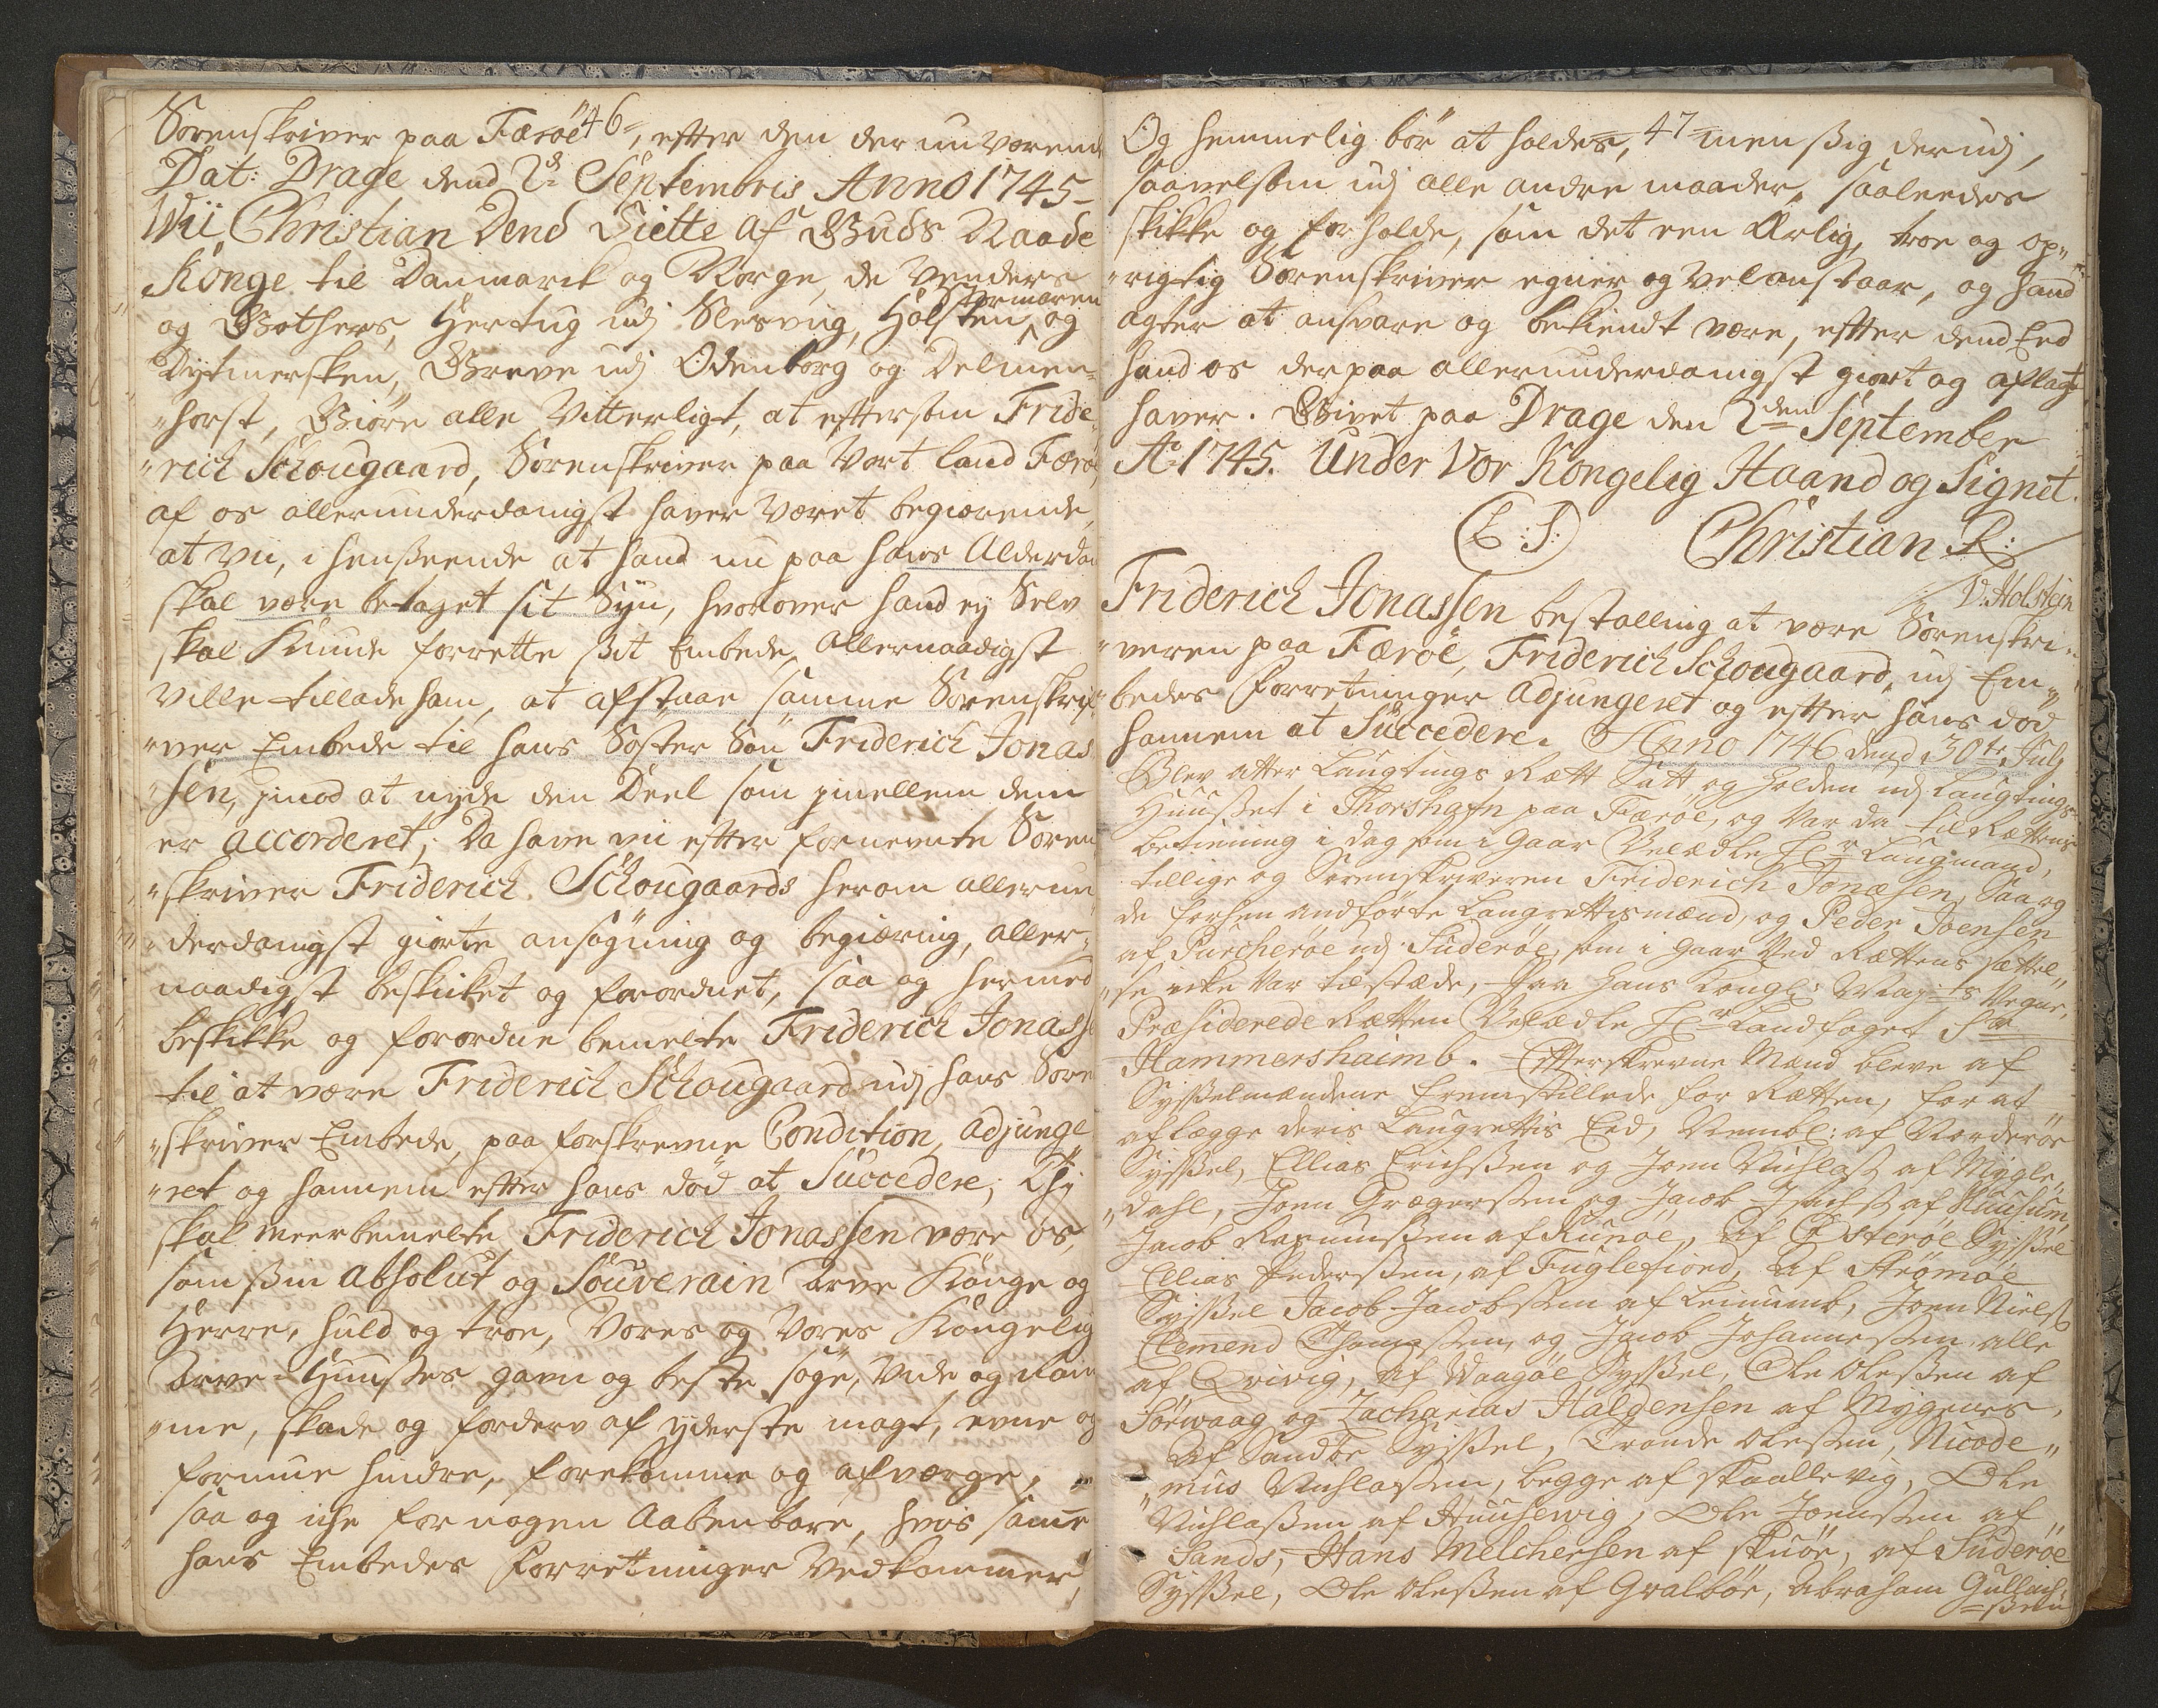 46
Sorenskriver paa Færöe, efter den der nu værende
Dat: Drage dend 2de Septembris Anno 1745-
Wii Christian Dend Siette af Guds Naade
Konge til Danmarck og Norge, de Venders
og Gothers, Hertug udj Slesvig, Holsten, Stormaren og
Dytmersken, Greve udj Odenborg og Delmen„
„horst, Giöre alle Vitterligt, at eftersom Fride„
„rich Schougaard, Sorenskriver paa Vort Land Færöe,
af os allerunderdanigst haver været begiærende,
at Vii, i henseende at hand nu paa hans Alderdom
skal være betaget sit Syn, hvorover hand ey Selv
skal Kunde forrette sit Embede, allernaadigst
ville tillade ham, at afstaae samme Sorenskri„
„ver Embede til hans Söster Sön Friderich Jonas
„sen, jmod at nyde den Deel som jmellem dem
er accorderet; Da have vii efter fornevnte Soren„
„skriver Friderich Schougaards herom allerun„
„derdanigst giorte ansögning og begiæring, aller„
naadigst beskicket og forordnet, saa og hermed
beskikke og forordne bemelte Friderich Jonass
til at være Friderich Schougaard udj hans Soren
„skriver Embede, paa forskrevne Condition, adjunge
„ret og hannem efter hans död at Succedere; Thj
skal meerbemelte Friderich Jonassen være os,
som sin absolut og Souverain Arve Konge og
Herre, huld og troe, Vores og Vores Kongelig
Arve-Huuses gavn og beste söge, vide og ram„
„me, skade og forderv af yderste magt, evne og
formue hindre, forekomme og afværge,
saa og icke for nogen Aabenbare, hvis samme
hans Embedes Forretninger Vedkommer,
47
Og hemmelig bör at holdes, men sig derudj,
saavelsom udj alle andre maader, saaleedes
skikke og forholde, som det een Ærlig, troe og op„
„rigtig Sorenskriver egner og vel anstaar, og hand
agter at ansvare og bekiendt være, efter dend Eed
hand os derpaa allerunderdanigst giort og aflagt
haver. Givet paa Drage den 2den September
Ao 1745. Under Vor Kongelig Haand og Signet.
(L:S:) Christian R:
V. Holstein
Friderich Jonassen bestalling at være Sorenskri„
„veren paa Færöe, Friderich Schougaard, udj Em„
bedes Forretninger Adjungeret og efter hans död
hannem at Succedere. Anno 1746 dend 30te Julj
Blev atter Laugtings Rætt Satt og holden udj Laugtings
Huuset i Thorshafn paa Færöe, og var da til Rættens
betiening i dag som i Gaar Velædle Hr Laugmand,
tillige og Sorenskriveren Friderich Jonæsen, Saa og
de forhen andförte Laugrettismænd, og Peder Joensen
af Purcheröe udj Suderöe, som i Gaar Ved Rættens sættel„
„se icke Var tilstæde, Paa Hans Kongl: Majts Vegne,
Præsiderede Rætten Velædle Hr Landfoget Sr
Hammershaimb. Efterskrevne Mænd bleve af
Sysselmændene fremstillede for Rætten, for at
aflægge deris Laugrettis Eed, Nembl: af Norderöe
Syssel, Ellias Erichsen og Joen Nichlass af Mygle„
„dahl, Joen Grægersen og Jacob Isachs af Huusum,
Jacob Rasmussen af Kunöe, Af Österöe Syssel
Ellias Pedersen, af Fuglefiord, Af Strömöe
Syssel Jacob Jacobsen af Leinumb, Joen Niels
Clemend Thomasen, og Jacob Johannesen alle
af Qvivig, Af Waagöe Syssel, Ole Olesen af
Sörwaag og Zacharias Haldensen af Mygenes,
Af Sandöe Syssel, Tronde Olesen, Nicode„
„mus Nichlasen, begge af Skaallevig, Ole
Nichlasen af Huusewig, Ole Joensen af
Sands, Hans Melchersen af Skuöe, af Suderöe
Syssel, Ole Olesen af Qvalböe, Abraham Gullach„
„sen